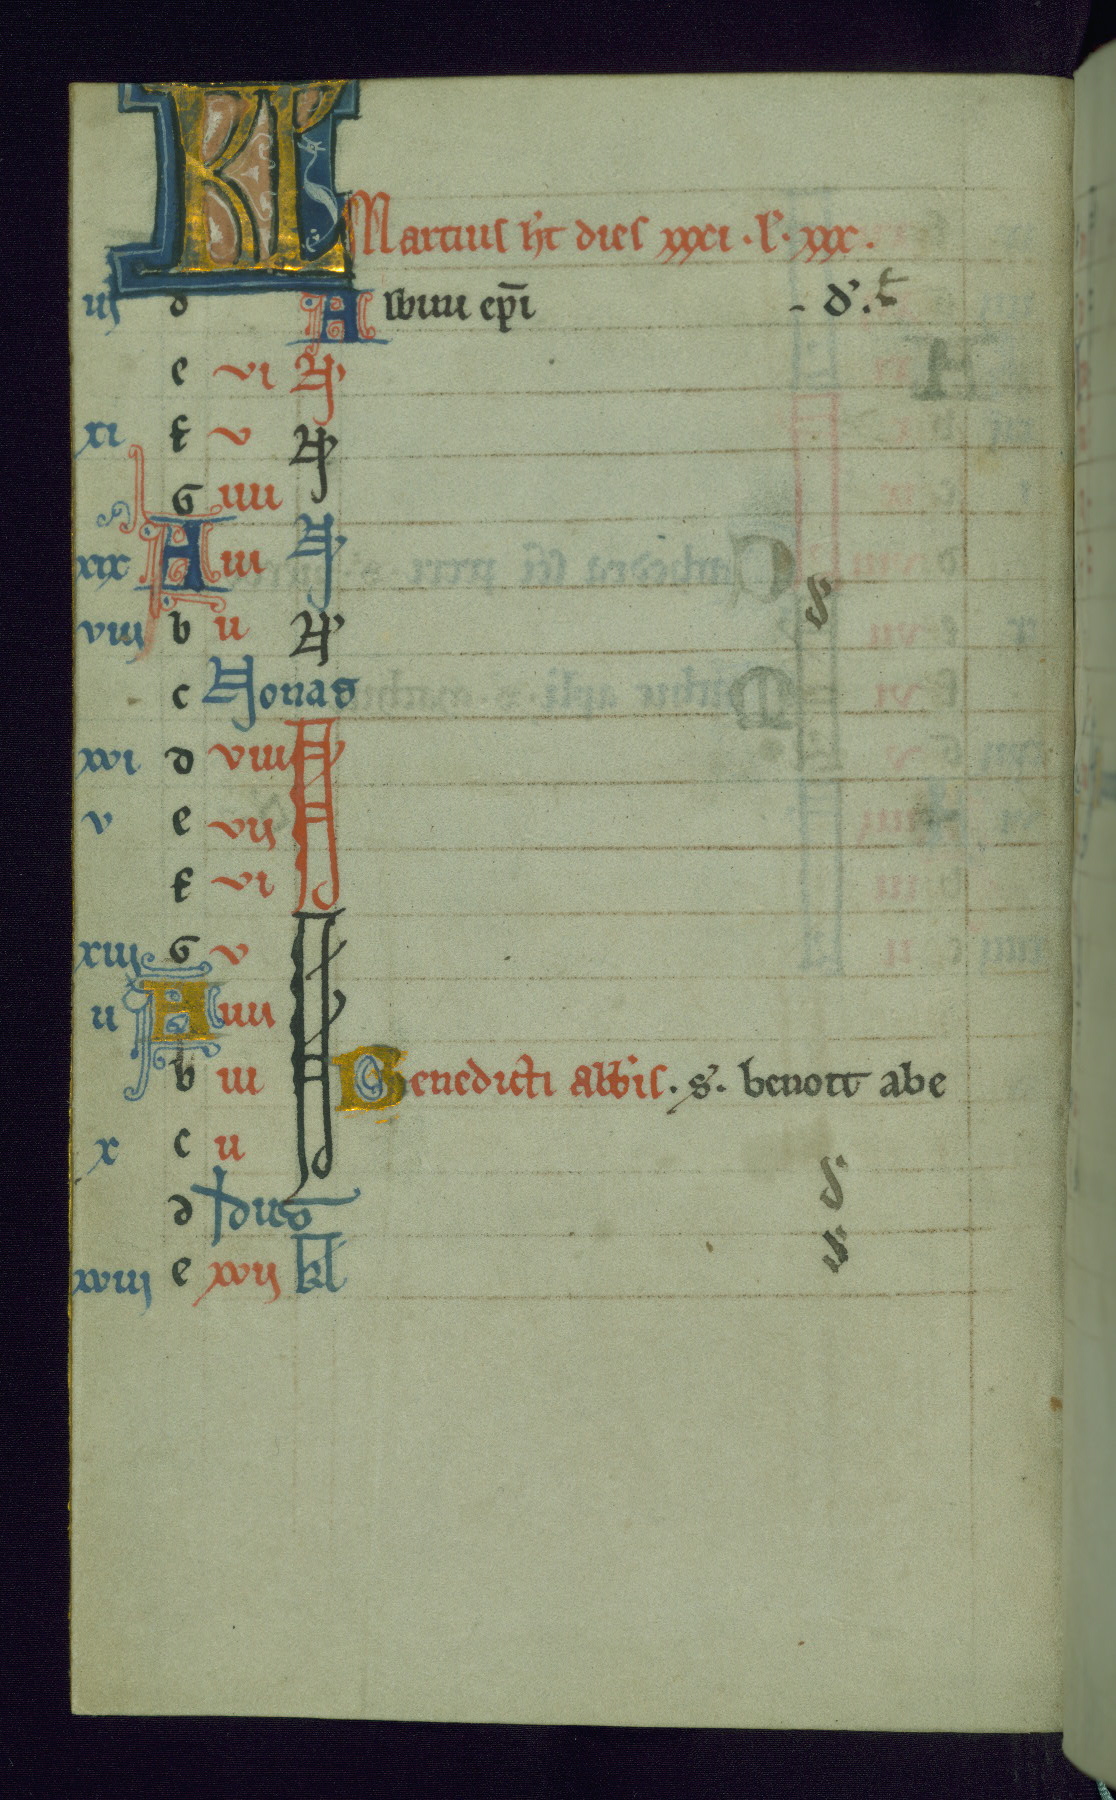 KL Martius ht dies xxxi . l . xxx .
iij d Albini epi - d . t
e vi N
xi f v N
G iiii N
xix A iii N
viij b ii N
c Nonas
xvi d viii
v e vij
f vi
xiij G v
ii A iiii
b iii Benedicti abbis . s . benoit abe
x c ii
d Idus
xviij e xvij kl